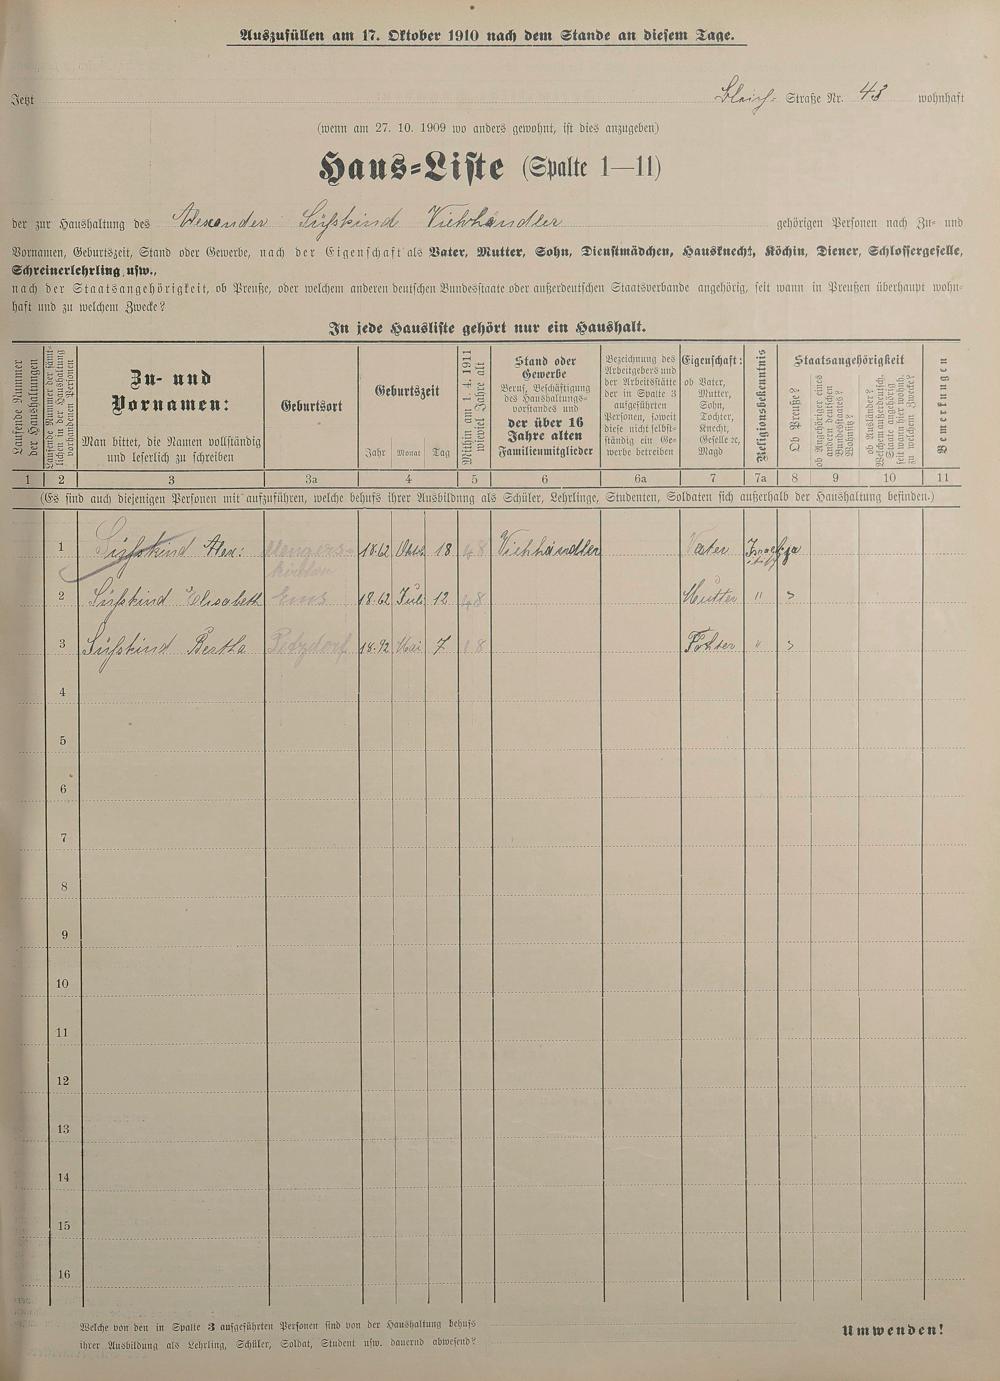 Auszufüllen am 17. Oktober 1910 nach dem Stande an diesem Tage.
Jetzt Bleich- Straße Nr. 43 wohnhaft
(wenn am 27. 10. 1909 wo anders gewohnt, ist dies anzugeben)
Haus-Liste (Spalte 1—11)
der zur Haushaltung des Alexander Süßskind Viehhändler gehörigen Personen nach Zu- und
Vornamen, Geburtszeit, Stand oder Gewerbe, nach der Eigenschaft als Vater, Mutter, Sohn, Dienstmädchen, Hausknecht, Köchin, Diener, Schlossergeselle,
Schreinerlehrling usw.,
nach der Staatsangehörigkeit, ob Preuße, oder welchem anderen deutschen Bundesstaate oder außerdeutschen Staatsverbande angehörig, seit wann in Preußen überhaupt wohn-
haft und zu welchem Zwecke?
In jede Hausliste gehört nur ein Haushalt.
Laufende Nummer
der Haushaltungen
Laufende Nummer der sämt-
lichen in der Haushaltung
vorhandenen Personen
Zu- und
Vornamen:
Man bittet, die Namen vollständig
und leserlich zu schreiben
Geburtsort
Geburtszeit
Jahr Monat Tag
Mithin am 1. 4. 1911
wieviel Jahre alt
Stand oder
Gewerbe
Beruf, Beschäftigung
des Haushaltungs-
vorstandes und
der über 16
Jahre alten
Familienmitglieder
Bezeichnung des
Arbeitgebers und
der Arbeitsstätte
der in Spalte 3
aufgeführten
Personen, soweit
diese nicht selbst-
ständig ein Ge-
werbe betreiben
Eigenschaft:
ob Vater,
Mutter,
Sohn,
Tochter,
Knecht,
Geselle ec,
Magd
Religionsbekenntnis
Staatsangehörigkeit
Ob Preuße?
ob Angehöriger eines
andern deutschen
Bundesstaates?
Wohnsitz?
ob Ausländer?
Welchem außerdeutsch.
Staate angehörig
seit wann hier wohnh.
zu welchem Zwecke?
Bemerkungen
1 2 3 3a 4 5 6 6a 7 7a 8 9 10 11
(Es sind auch diejenigen Personen mit aufzuführen, welche behufs ihrer Ausbildung als Schüler, Lehrlinge, Studenten, Soldaten sich außerhalb der Haushaltung befinden.)
1 Süßskind Alex: Mengers-
kirchen 1862 18 48 Viehhändler Vater ja
2 Süßskind Elisabeth Ems 1862 Juli 12 48 Mutter "
3 Süßskind Bertha 1892 Mai 7 18 "
4
5
6
7
8
9
10
11
12
13
14
15
16
Welche von den in Spalte 3 aufgeführten Personen sind von der Haushaltung behufs
ihrer Ausbildung als Lehrling, Schüler, Soldat, Student usw. dauernd abwesend?
Umwenden!